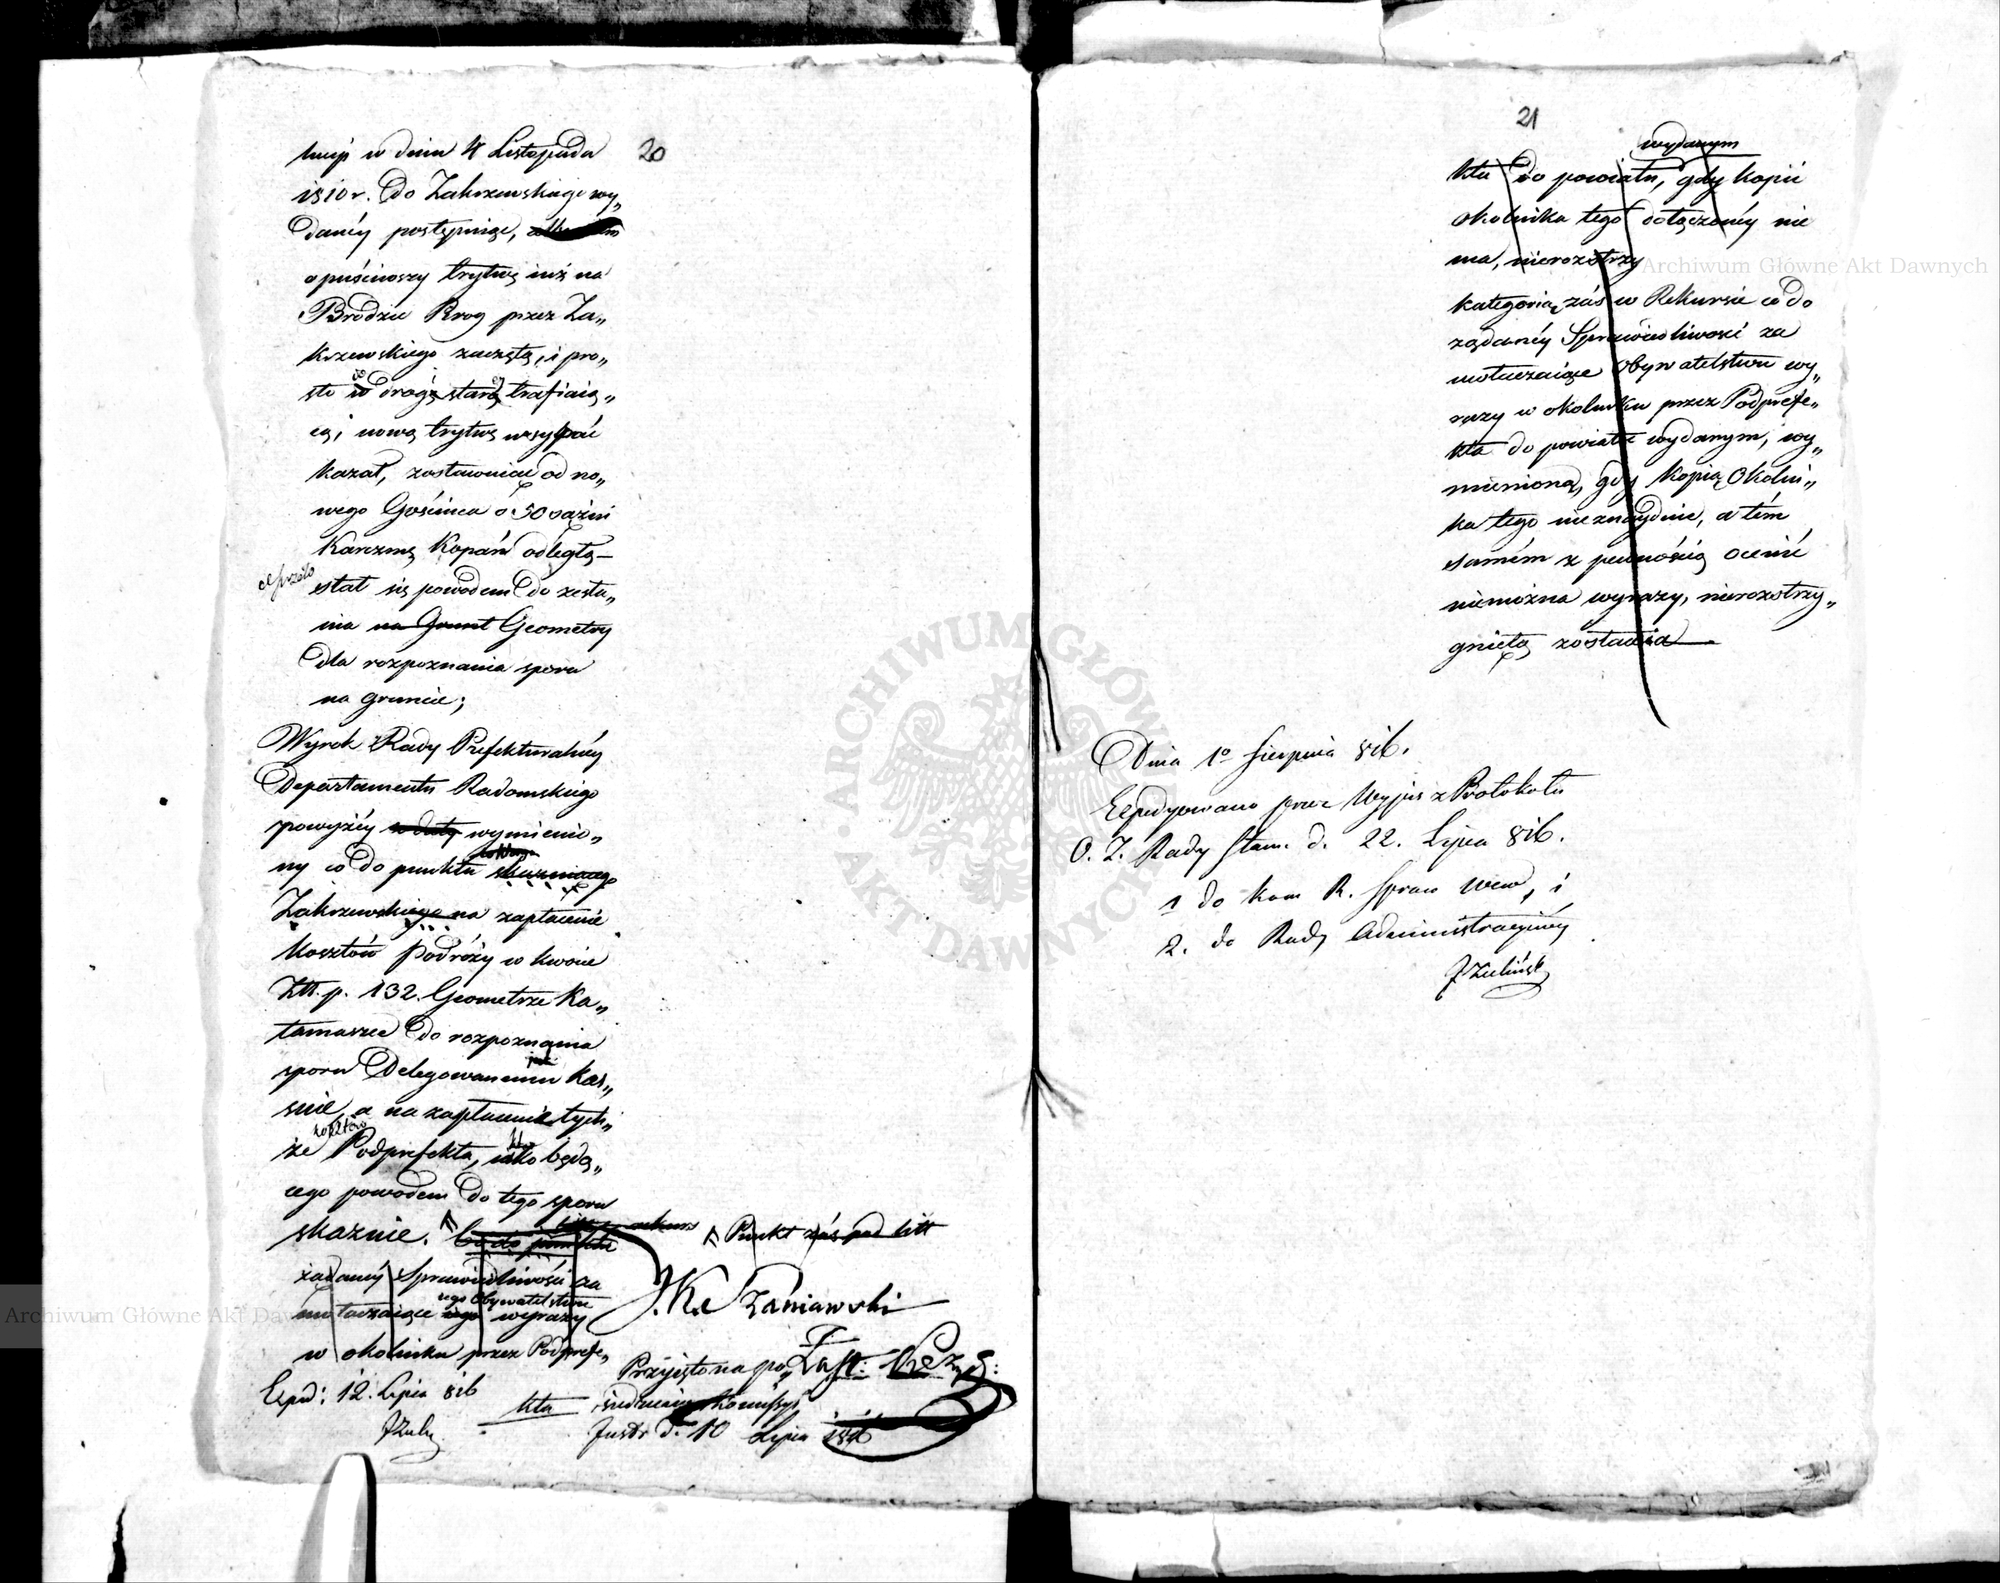 20
kucji w dniu 4 Listopada
1810 r. do Zakrzewskiego wy„
danéy postępuiąc,
opuściwszy trytwę iuż na
Brodzie Brog przez Za„
krzewskiego zaczętą, i pro„
sto w drogę starą trafiaią„
cą, nową trytwę usypać
kazał, zostawuiąc od no„
wego Gościńca o 50 sążni
Karczmę Kopań odległą —
a przeto
stał się powodem do zesła„
nia na Grunt Geometry
dla rozpoznania sporu
na gruncie;
Wyrok Rady Prefekturalnéy
Departamentu Radomskiego
powyżéy wymienio„
ny co do punktu skazuiącego
Zakrzewskiego na zapłacenie
kosztów podróży w kwocie
Złł. p. 132. Geometrze Ka„
tamaszce do rozpoznania
sporu Delegowanemu kas„
suie, a na zapłacenie tych„
kosztów
że Podprefekta, iako będą„
cego powodem do tego sporu
skazuie. Co do punktu
Punkt zaś pod litt
żądanéy Sprawiedliwości za
ego Obywatelstwu
uwłaczaiące iego wyrazy
w okolniku przez Podprefe„
kta
Exped: 12. Lipca 816
J.K. Szaniawski
Zast: Prezyd:
Przyjęto na po„
siedzeniu Komissyi
Justr d. 10 Lipca 1816
21
wydanym
kta do powiatu, gdy kopii
okolnika tego dołączonéy nie
ma, nierozstrzy
kategorią zaś w Rekursie co do
żądanéy Sprawiedliwości za
uwłaczaiące Obywatelstwu wy„
razy w okolniku przez Podprefe„
kta do powiatu wydanym, wy„
mienioną, gdy kopią Okolni„
ka tego nieznayduie, a tém
samém z pewnością ocenić
niemożna wyrazy, nierozstrzy„
gniętą zostawia —
Dnia 1º Sierpnia 816.
Expedyowano przez Wypis z Protokołu
O. Z. Rady Stanu d. 22. Lipca 816.
1 do Kom R. Spraw Wew, i
2. do Rady Administracyinéy